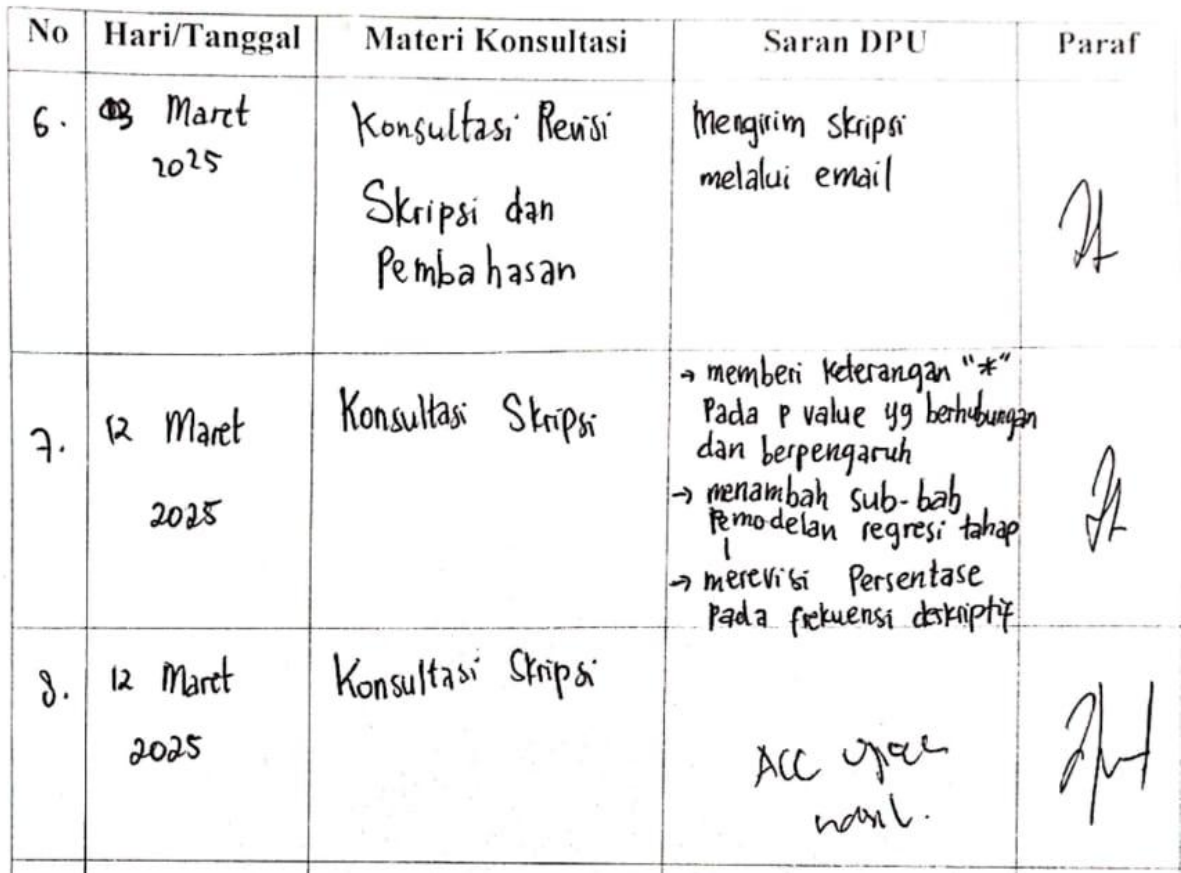 No Hari/Tanggal Materi Konsultasi Saran DPU Paraf
6. 03 Maret
2025
Konsultasi Revisi
Skripsi dan
Pembahasan
Mengirim skripsi
melalui email
7. 12 Maret
2025
Konsultasi Skripsi
→ memberi keterangan "*"
Pada p value yg berhubungan
dan berpengaruh
→ menambah sub-bab
Pemodelan regresi tahap
1
→ merevisi Persentase
Pada frekuensi deskriptif
8. 12 Maret
2025
Konsultasi Skripsi
ACC ujian
hasil.